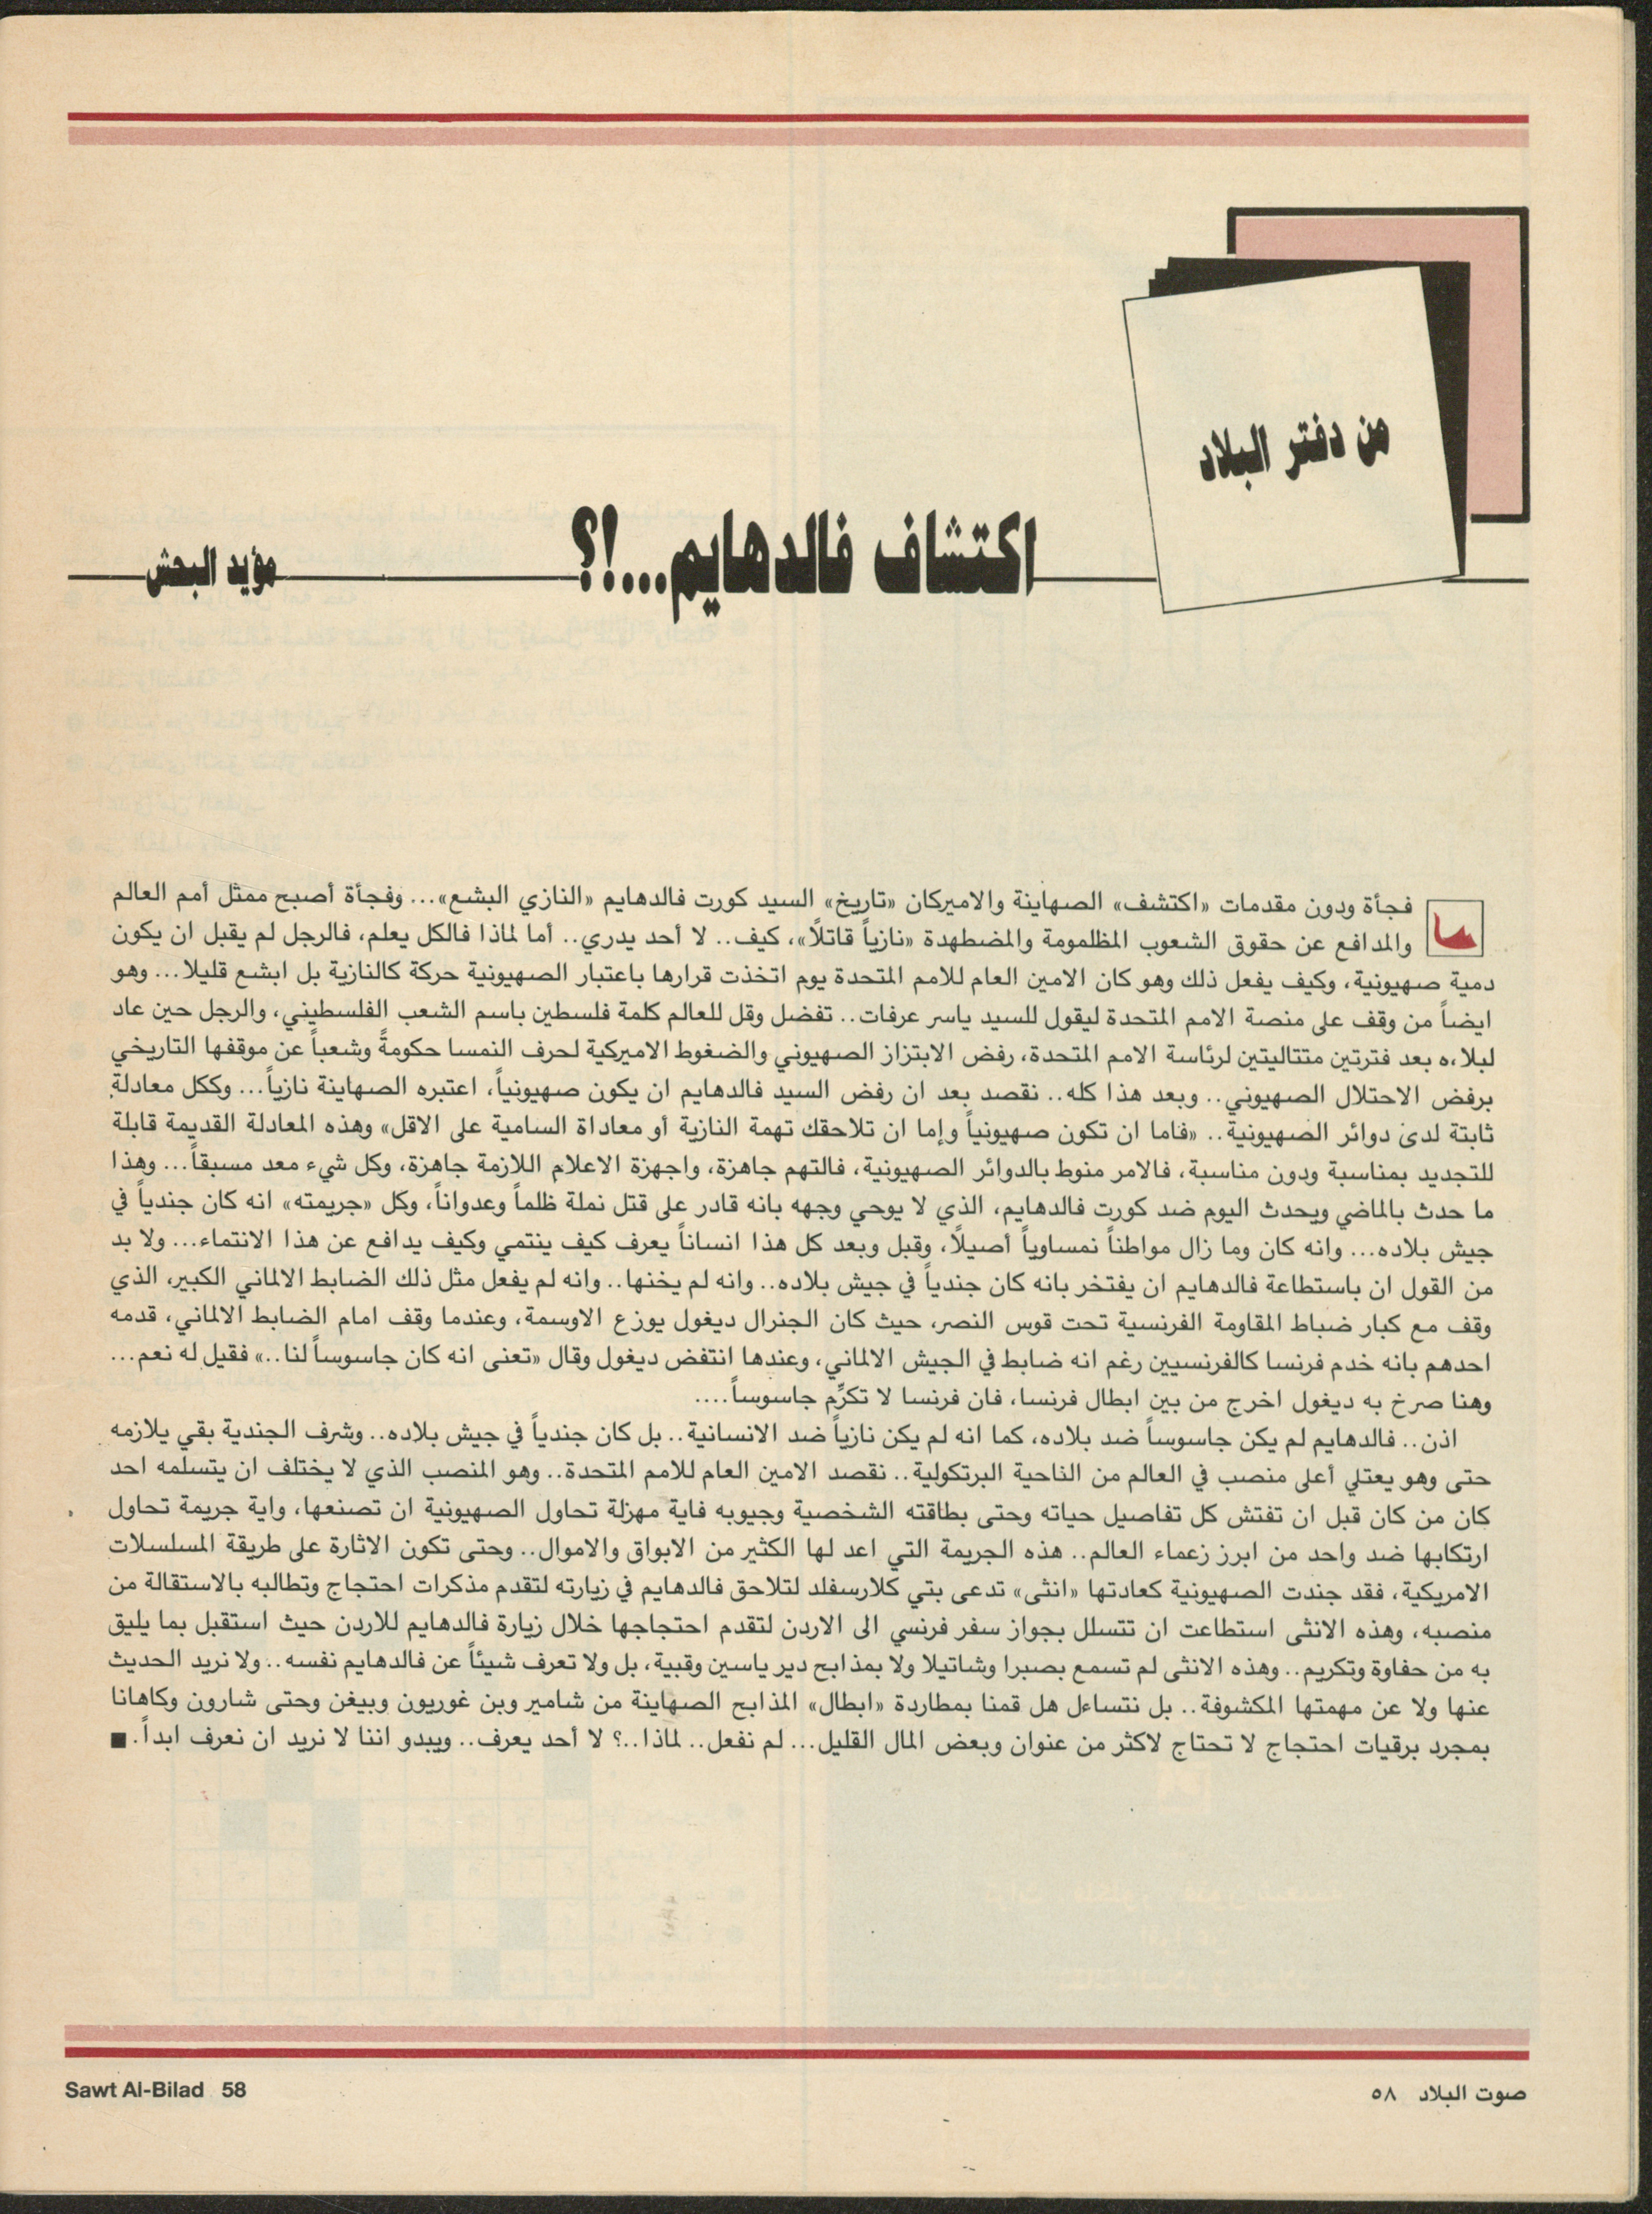 من دفتر البلاد
اكتشاف فالدهايم...!؟
مؤيد البحش
فجأة ودون مقدمات «اكتشف» الصهاينة والاميركان «تاريخ» السيد كورت فالدهايم «النازي البشع»... وفجأة أصبح ممثل أمم العالم
والمدافع عن حقوق الشعوب المظلومة والمضطهدة «نازياً قاتلاً»، كيف.. لا أحد يدري.. أما لماذا فالكل يعلم، فالرجل لم يقبل ان يكون
دمية صهيونية، وكيف يفعل ذلك وهو كان الامين العام للامم المتحدة يوم اتخذت قرارها باعتبار الصهيونية حركة كالنازية بل ابشع قليلا... وهو
ايضاً من وقف على منصة الامم المتحدة ليقول للسيد ياسر عرفات.. تفضل وقل للعالم كلمة فلسطين باسم الشعب الفلسطيني، والرجل حين عاد
لبلاده بعد فترتين متتاليتين لرئاسة الامم المتحدة، رفض الابتزاز الصهيوني والضغوط الاميركية لحرف النمسا حكومةً وشعباً عن موقفها التاريخي
برفض الاحتلال الصهيوني.. وبعد هذا كله.. نقصد بعد ان رفض السيد فالدهايم ان يكون صهيونياً، اعتبره الصهاينة نازياً... وككل معادلة
ثابتة لدى دوائر الصهيونية.. «فاما ان تكون صهيونياً وإما ان تلاحقك تهمة النازية أو معاداة السامية على الاقل» وهذه المعادلة القديمة قابلة
للتجديد بمناسبة ودون مناسبة، فالامر منوط بالدوائر الصهيونية، فالتهم جاهزة، واجهزة الاعلام اللازمة جاهزة، وكل شيء معد مسبقاً... وهذا
ما حدث بالماضي ويحدث اليوم ضد كورت فالدهايم، الذي لا يوحي وجهه بانه قادر على قتل نملة ظلماً وعدواناً، وكل «جريمته» انه كان جندياً في
جيش بلاده... وانه كان وما زال مواطناً نمساوياً أصيلاً، وقبل وبعد كل هذا انساناً يعرف كيف ينتمي وكيف يدافع عن هذا الانتماء... ولا بد
من القول ان باستطاعة فالدهايم ان يفتخر بانه كان جندياً في جيش بلاده.. وانه لم يخنها.. وانه لم يفعل مثل ذلك الضابط الالماني الكبير، الذي
وقف مع كبار ضباط المقاومة الفرنسية تحت قوس النصر، حيث كان الجنرال ديغول يوزع الاوسمة، وعندما وقف امام الضابط الالماني، قدمه
احدهم بانه خدم فرنسا كالفرنسيين رغم انه ضابط في الجيش الالماني، وعندها انتفض ديغول وقال «تعنى انه كان جاسوساً لنا..» فقيل له نعم...
وهنا صرخ به ديغول اخرج من بين ابطال فرنسا، فان فرنسا لا تكرِّم جاسوساً....
اذن.. فالدهايم لم يكن جاسوساً ضد بلاده، كما انه لم يكن نازياً ضد الانسانية.. بل كان جندياً في جيش بلاده.. وشرف الجندية بقي يلازمه
حتى وهو يعتلي أعلى منصب في العالم من الناحية البرتكولية.. نقصد الامين العام للامم المتحدة.. وهو المنصب الذي لا يختلف ان يتسلمه احد
كان من كان قبل ان تفتش كل تفاصيل حياته وحتى بطاقته الشخصية وجيوبه فاية مهزلة تحاول الصهيونية ان تصنعها، واية جريمة تحاول
ارتكابها ضد واحد من ابرز زعماء العالم.. هذه الجريمة التي اعد لها الكثير من الابواق والاموال.. وحتى تكون الاثارة على طريقة المسلسلات
الامريكية، فقد جندت الصهيونية كعادتها «انثى» تدعى بتي كلارسفلد لتلاحق فالدهايم في زيارته لتقدم مذكرات احتجاج وتطالبه بالاستقالة من
منصبه، وهذه الانثى استطاعت ان تتسلل بجواز سفر فرنسي الى الاردن لتقدم احتجاجها خلال زيارة فالدهايم للاردن حيث استقبل بما يليق
به من حفاوة وتكريم.. وهذه الانثى لم تسمع بصبرا وشاتيلا ولا بمذابح دير ياسين وقبية، بل ولا تعرف شيئاً عن فالدهايم نفسه.. ولا نريد الحديث
عنها ولا عن مهمتها المكشوفة.. بل نتساءل هل قمنا بمطاردة «ابطال» المذابح الصهاينة من شامير وبن غوريون وبيغن وحتى شارون وكاهانا
بمجرد برقيات احتجاج لا تحتاج لاكثر من عنوان وبعض المال القليل... لم نفعل.. لماذا..؟ لا أحد يعرف.. ويبدو اننا لا نريد ان نعرف ابداً. ■
صوت البلاد ٥٨
Sawt Al-Bilad 58